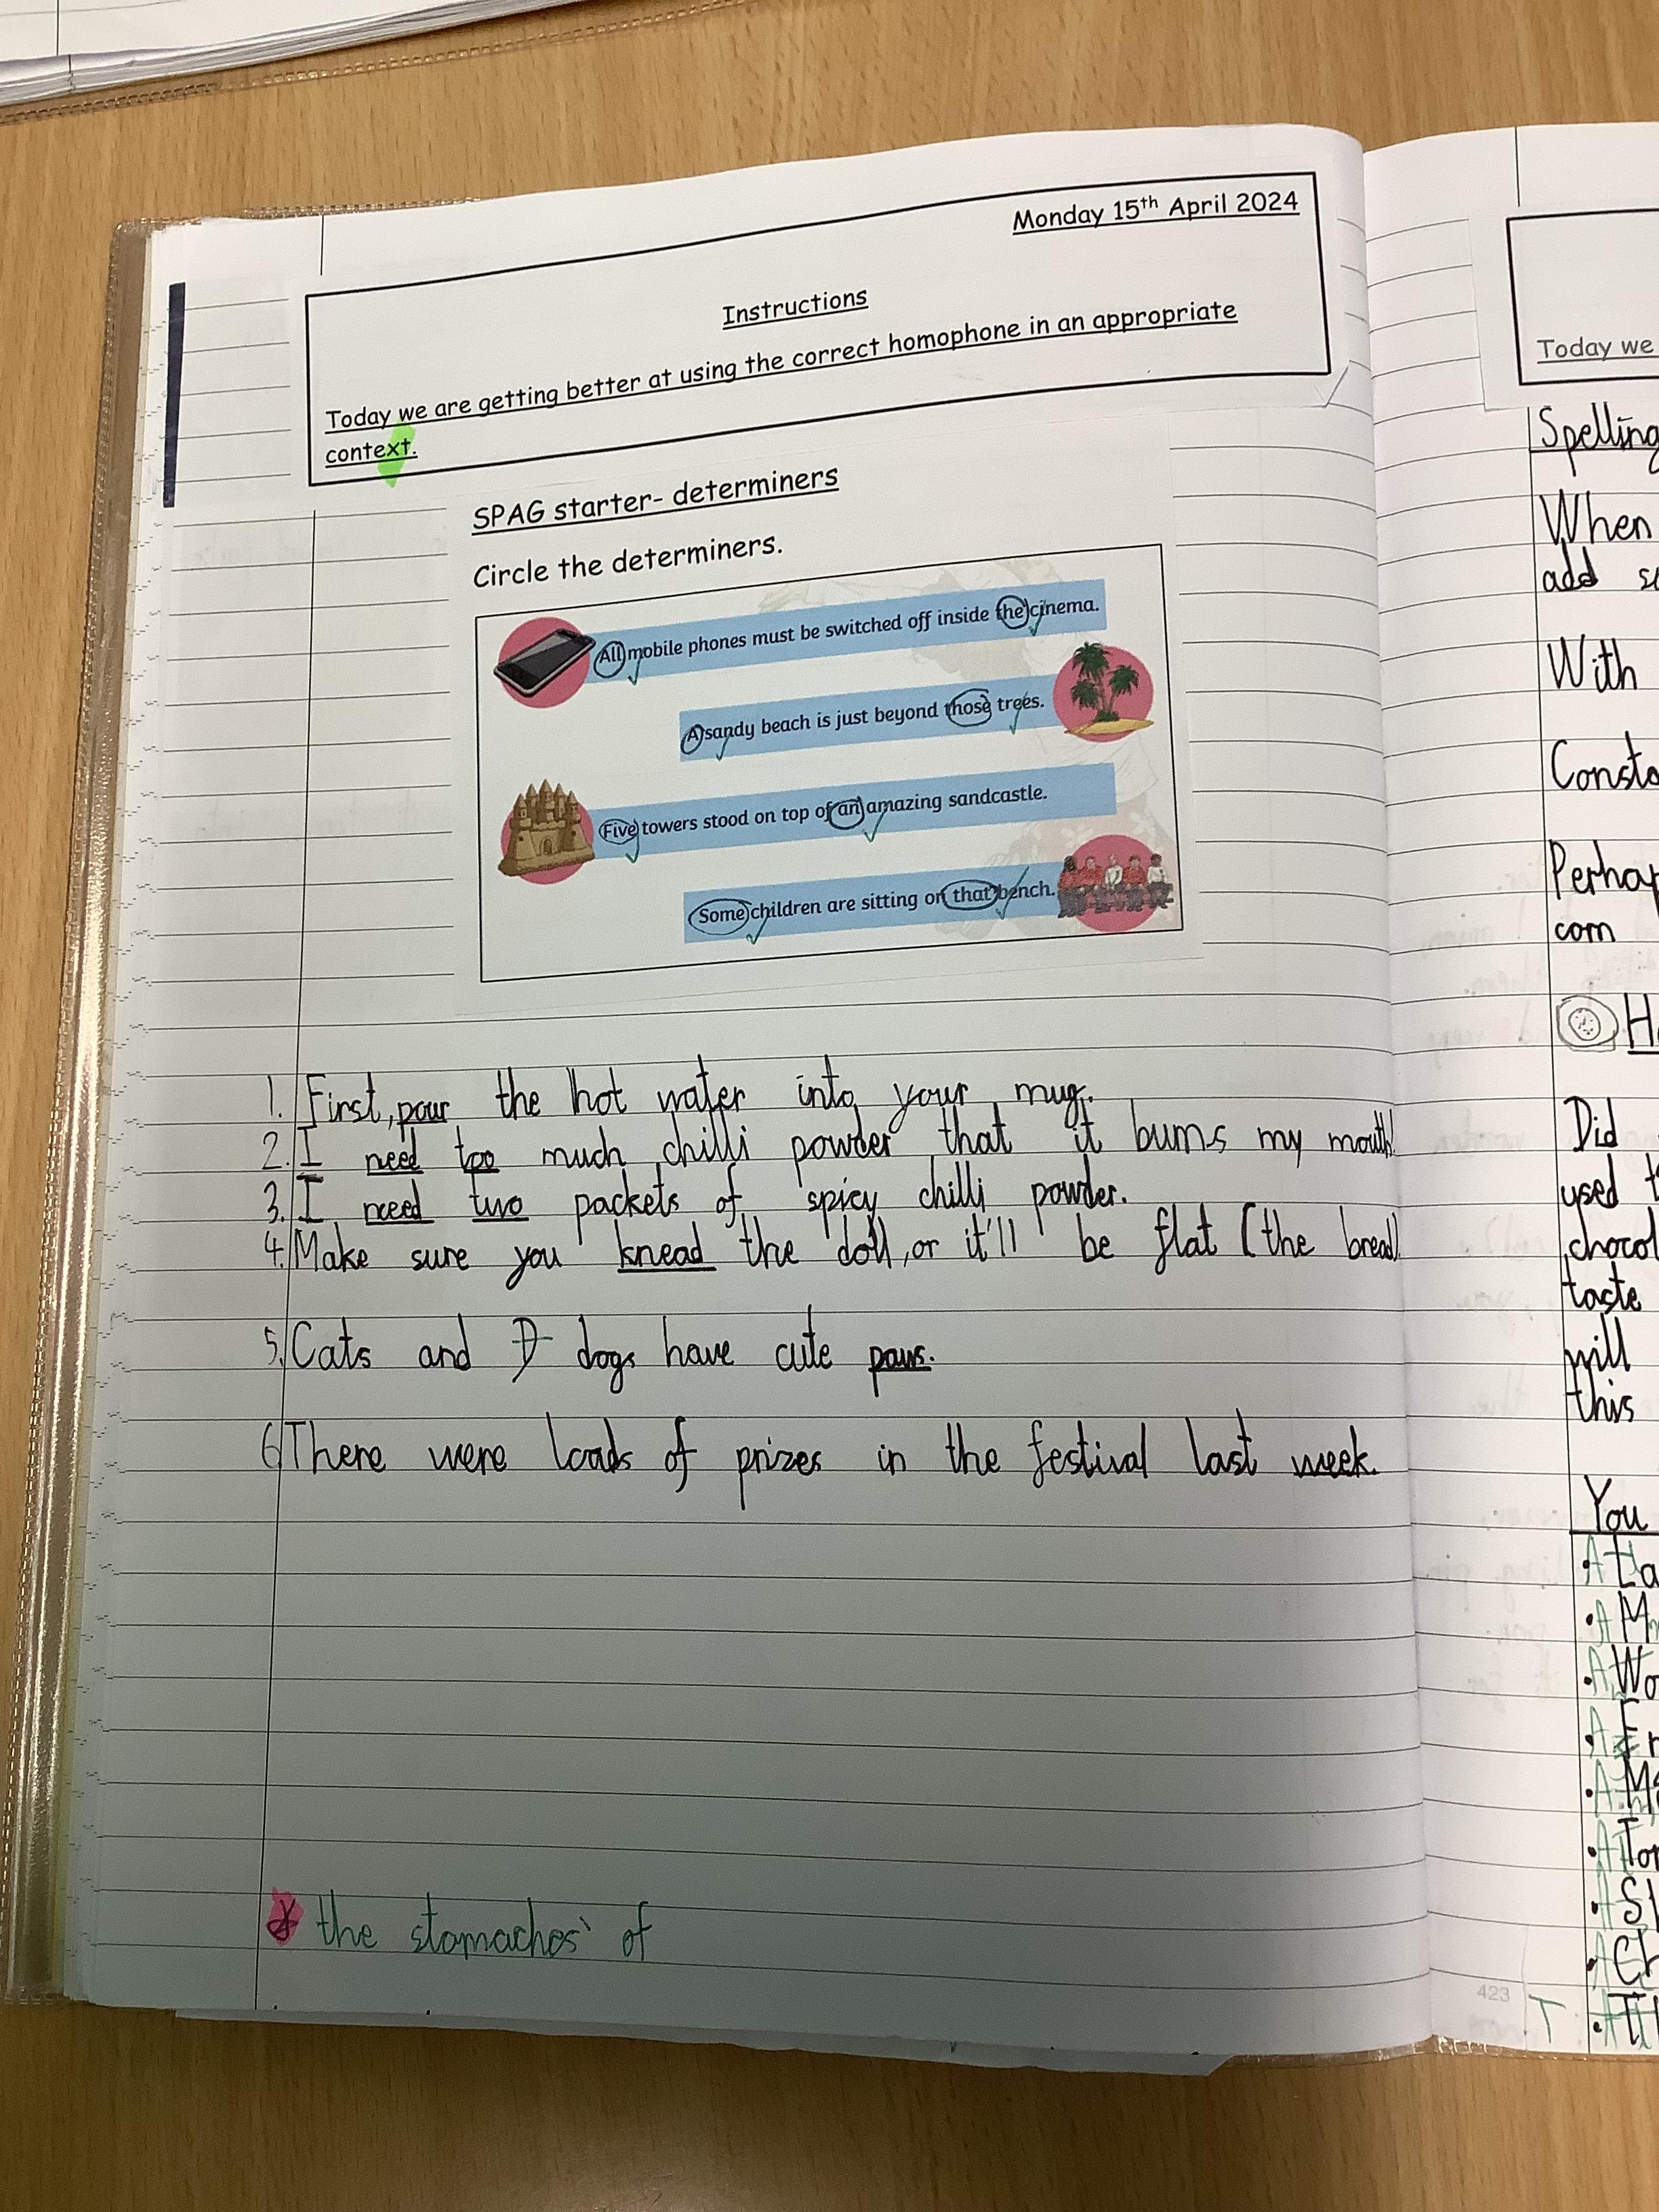 Monday 15th April 2024
Instructions
Today we are getting better at using the correct homophone in an appropriate
context.
SPAG starter- determiners
Circle the determiners.
All mobile phones must be switched off inside the cinema.
A sandy beach is just beyond those trees.
Five towers stood on top of an amazing sandcastle.
Some children are sitting on that bench.
1. First, pour the hot water into your mug.
2. I need too much chilli powder that it burns my mouth!
3. I need two packets of spicy chilli powder.
4. Make sure you knead the doll, or it'll be flat (the bread)
5. Cats and D dogs have cute paws.
6 There were loads of prizes in the festival last week.
the stomaches' of
Today we
Spelling
When
add
With
Perhap
com
Did
used
chocol
taste
will
this
You
423